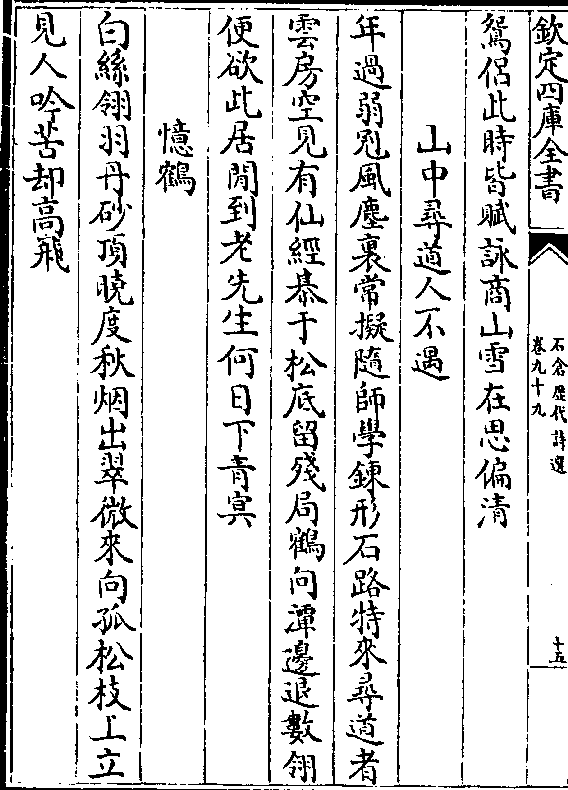 欽定四庫全書
石倉歷代詩選
卷九十九
十五
鴛侶此時皆賦詠商山雪在思偏清
山中尋道人不遇
年過弱冠風塵裏常擬隨師學鍊形石路特來尋道者
雲房空見有仙經棊于松底留殘局鶴向潭邊退數翎
便欲此居閒到老先生何日下青冥
憶鶴
白絲翎羽丹砂頂曉度秋烟出翠微來向孤松枝上立
見人吟苦却高飛